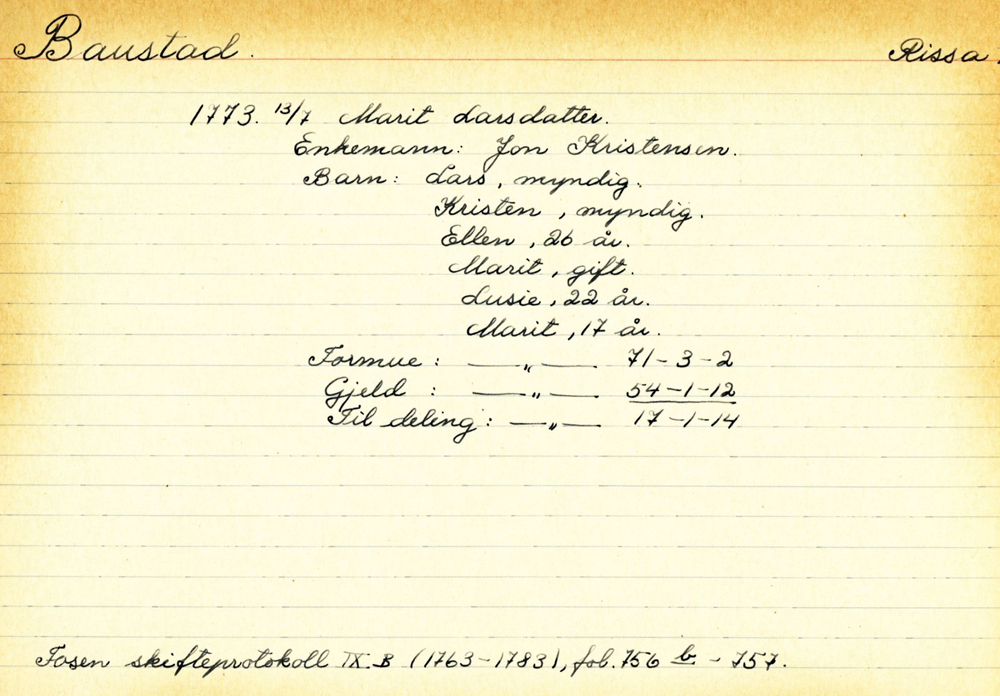 Baustad. Rissa.
1773. 13/7 Marit Larsdatter.
Enkemann: Jon Kristensen.
Barn: Lars, myndig.
Kristen, myndig.
Ellen, 26 år.
Marit, gift.
Lusie, 22 år.
Marit, 17 år.
Formue: —„— 71-3-2
Gjeld : —„— 54-1-12
Til deling: —„— 17-1-14
Fosen skifteprotokoll IX B (1763-1783), fol. 756 b - 757.